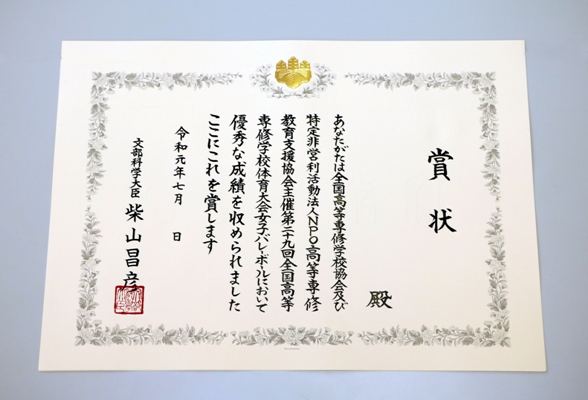 賞状
殿
あなたがたは全国高等専修学校協会及び
特定非営利活動法人NPO高等専修
教育支援協会主催第二十九回全国高等
専修学校体育大会女子バレーボールにおいて
優秀な成績を収められました
ここにこれを賞します
令和元年七月　日
文部科学大臣　柴山昌彦